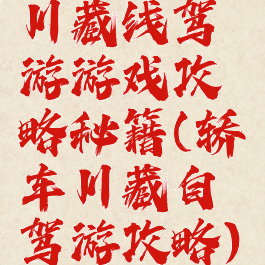 川藏线驾
游游戏攻
略秘籍(轿
车川藏自
驾游攻略)